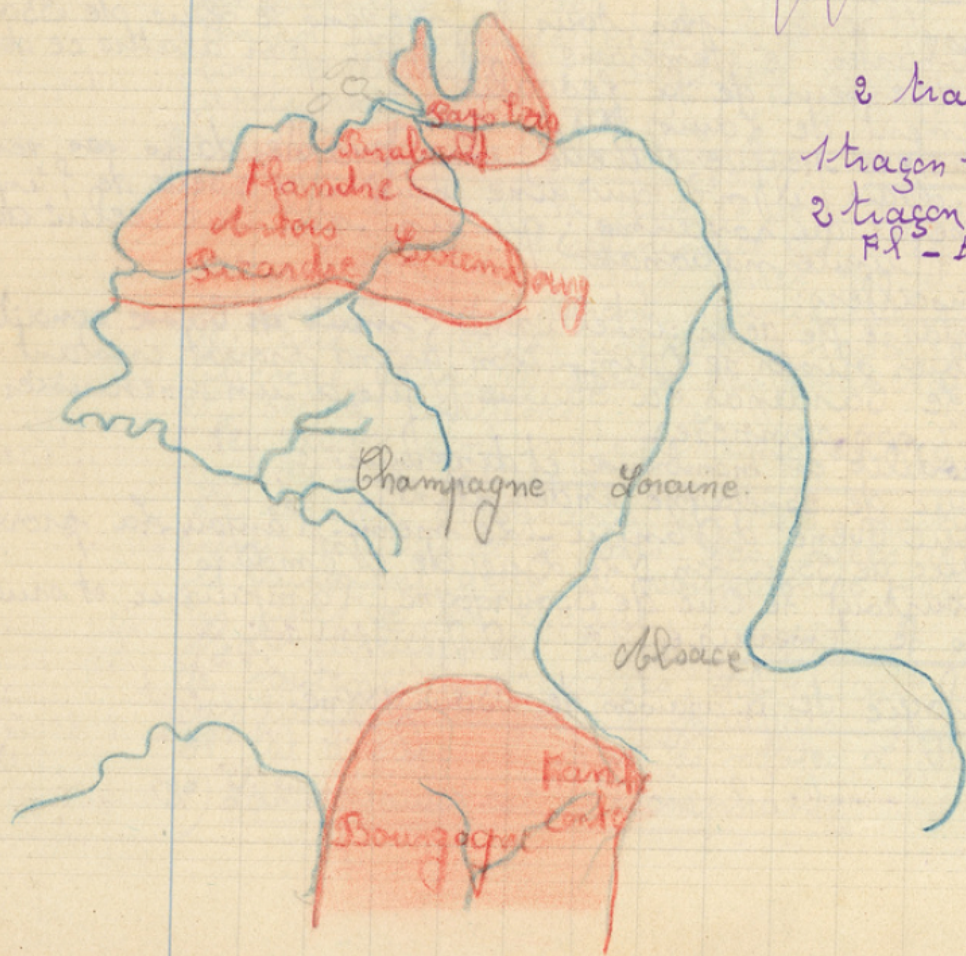 2 tra
1 traçon
2 traçon
Fl -
Pays bas
Brabant
Flandre
Artois
Luxembourg
Picardie
Champagne
Loraine
Alsace
Franche
comté
Bourgogne